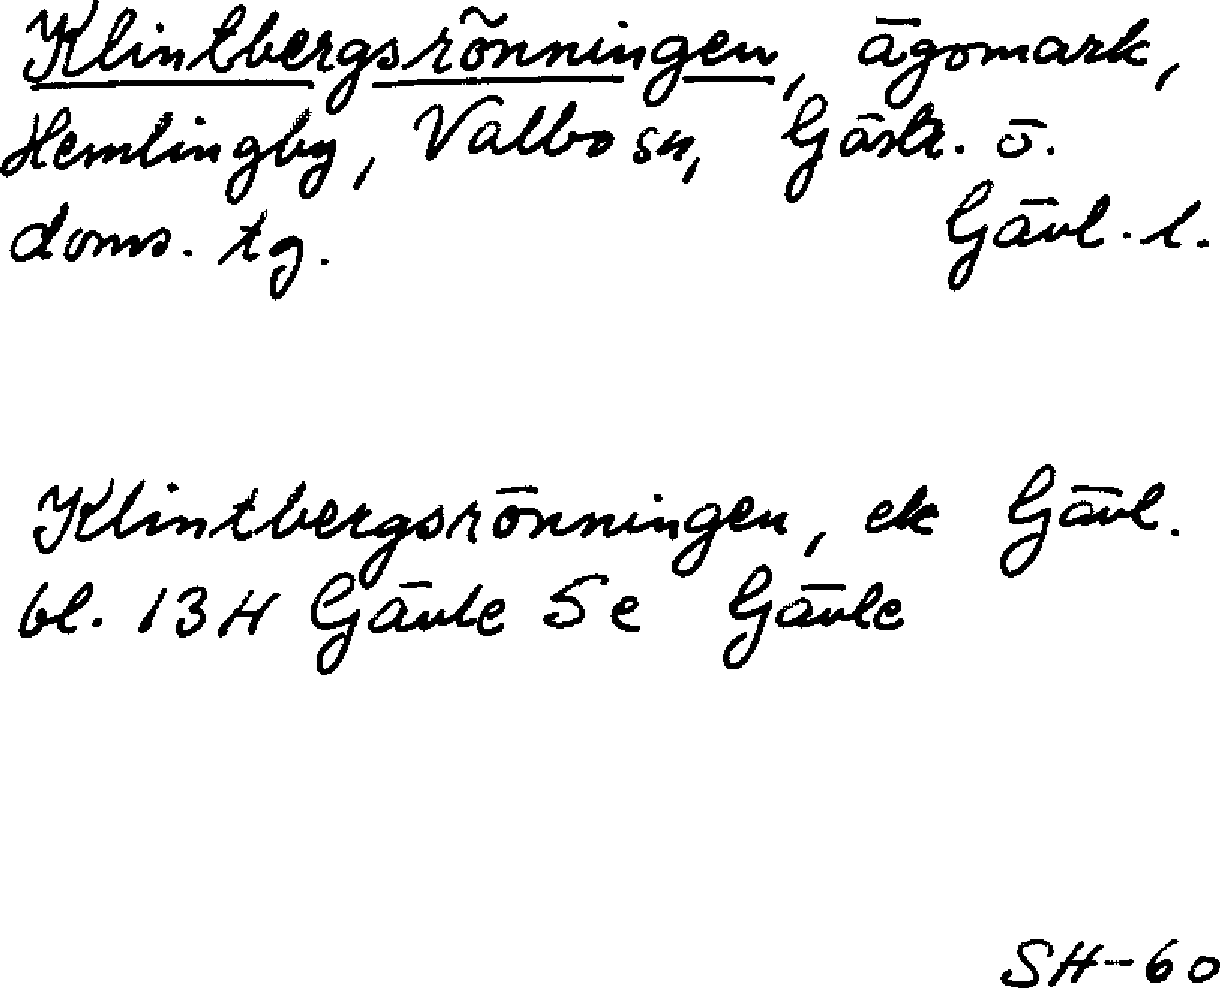 Klintbergsrönningen, ägomark,
Hemlingby, Valbo sn, Gästr. ö.
doms. tg. Gävl. l.
Klintbergsrönningen, ek Gävl.
bl. 13H Gävle 5e Gävle
SH-60